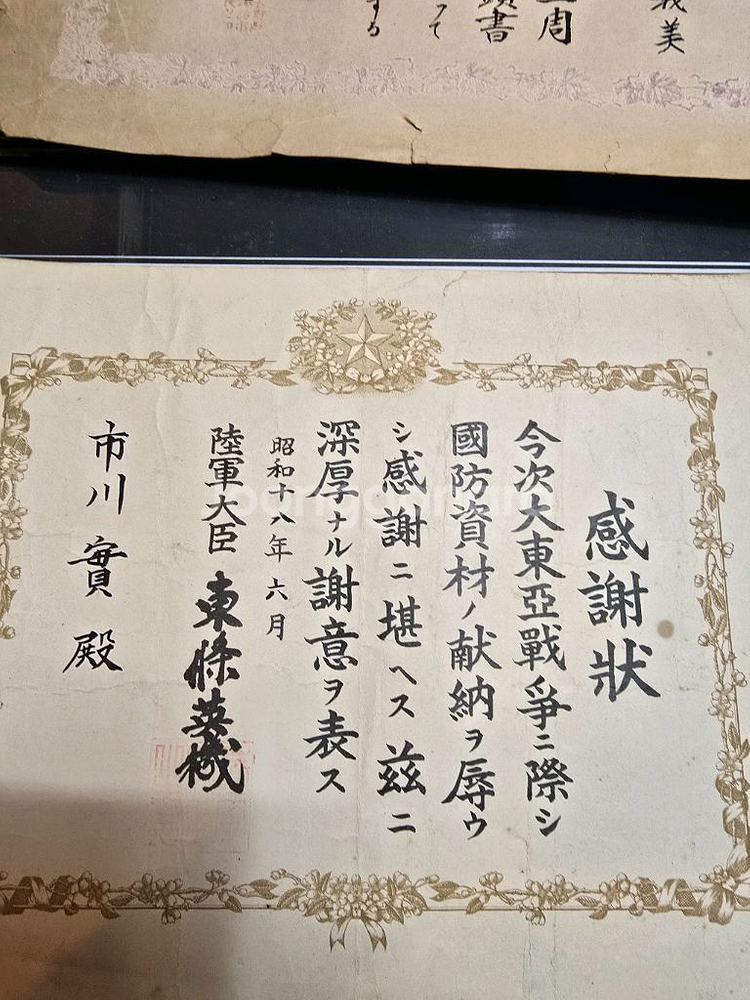 感謝狀
今次大東亞戰爭ニ際シ
國防資材ノ献納ヲ辱ウ
シ感謝ニ堪ヘス茲ニ
深厚ナル謝意ヲ表ス
昭和十八年六月
陸軍大臣 東條英機
市川實殿
美
周
書
って
する